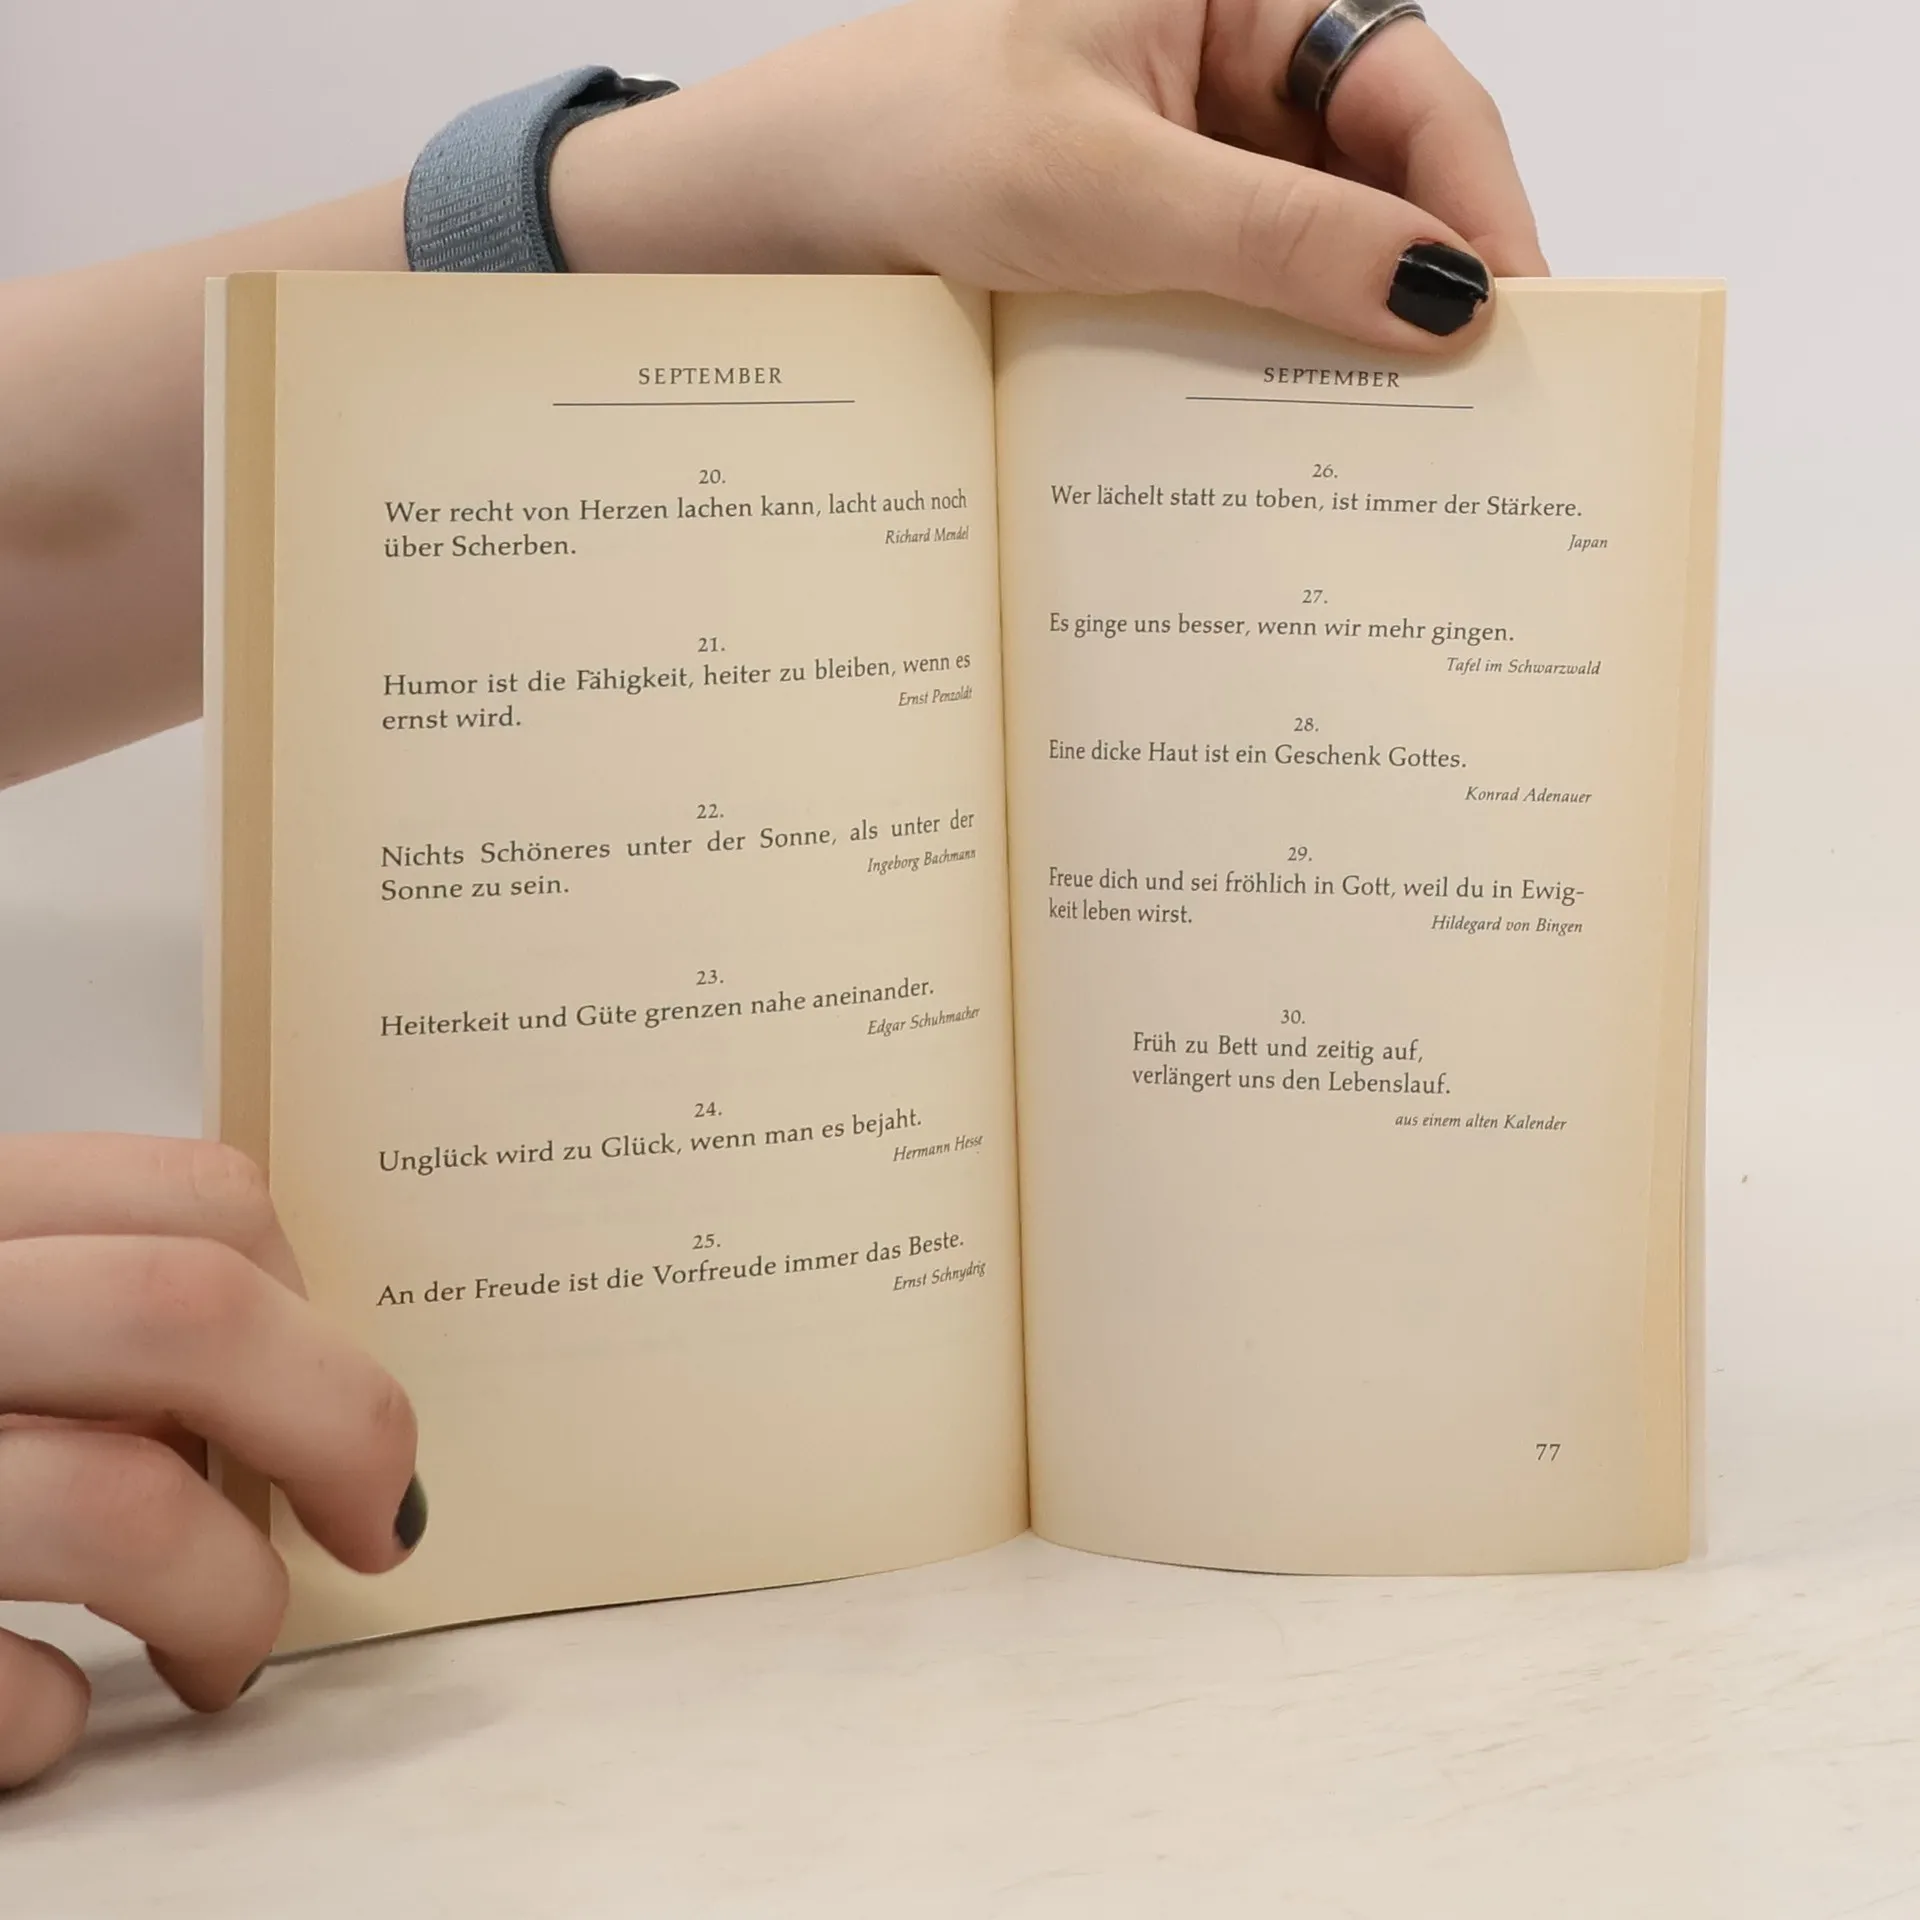 SEPTEMBER
20.
Wer recht von Herzen lachen kann, lacht auch noch
über Scherben.
Richard Mendel
21.
Humor ist die Fähigkeit, heiter zu bleiben, wenn es
ernst wird.
Ernst Penzoldt
22.
Nichts Schöneres unter der Sonne, als unter der
Sonne zu sein.
Ingeborg Bachmann
23.
Heiterkeit und Güte grenzen nahe aneinander.
Edgar Schuhmacher
24.
Unglück wird zu Glück, wenn man es bejaht.
Hermann Hesse
25.
An der Freude ist die Vorfreude immer das Beste.
Ernst Schnydrig
SEPTEMBER
26.
Wer lächelt statt zu toben, ist immer der Stärkere.
Japan
27.
Es ginge uns besser, wenn wir mehr gingen.
Tafel im Schwarzwald
28.
Eine dicke Haut ist ein Geschenk Gottes.
Konrad Adenauer
29.
Freue dich und sei fröhlich in Gott, weil du in Ewig-
keit leben wirst.
Hildegard von Bingen
30.
Früh zu Bett und zeitig auf,
verlängert uns den Lebenslauf.
aus einem alten Kalender
77